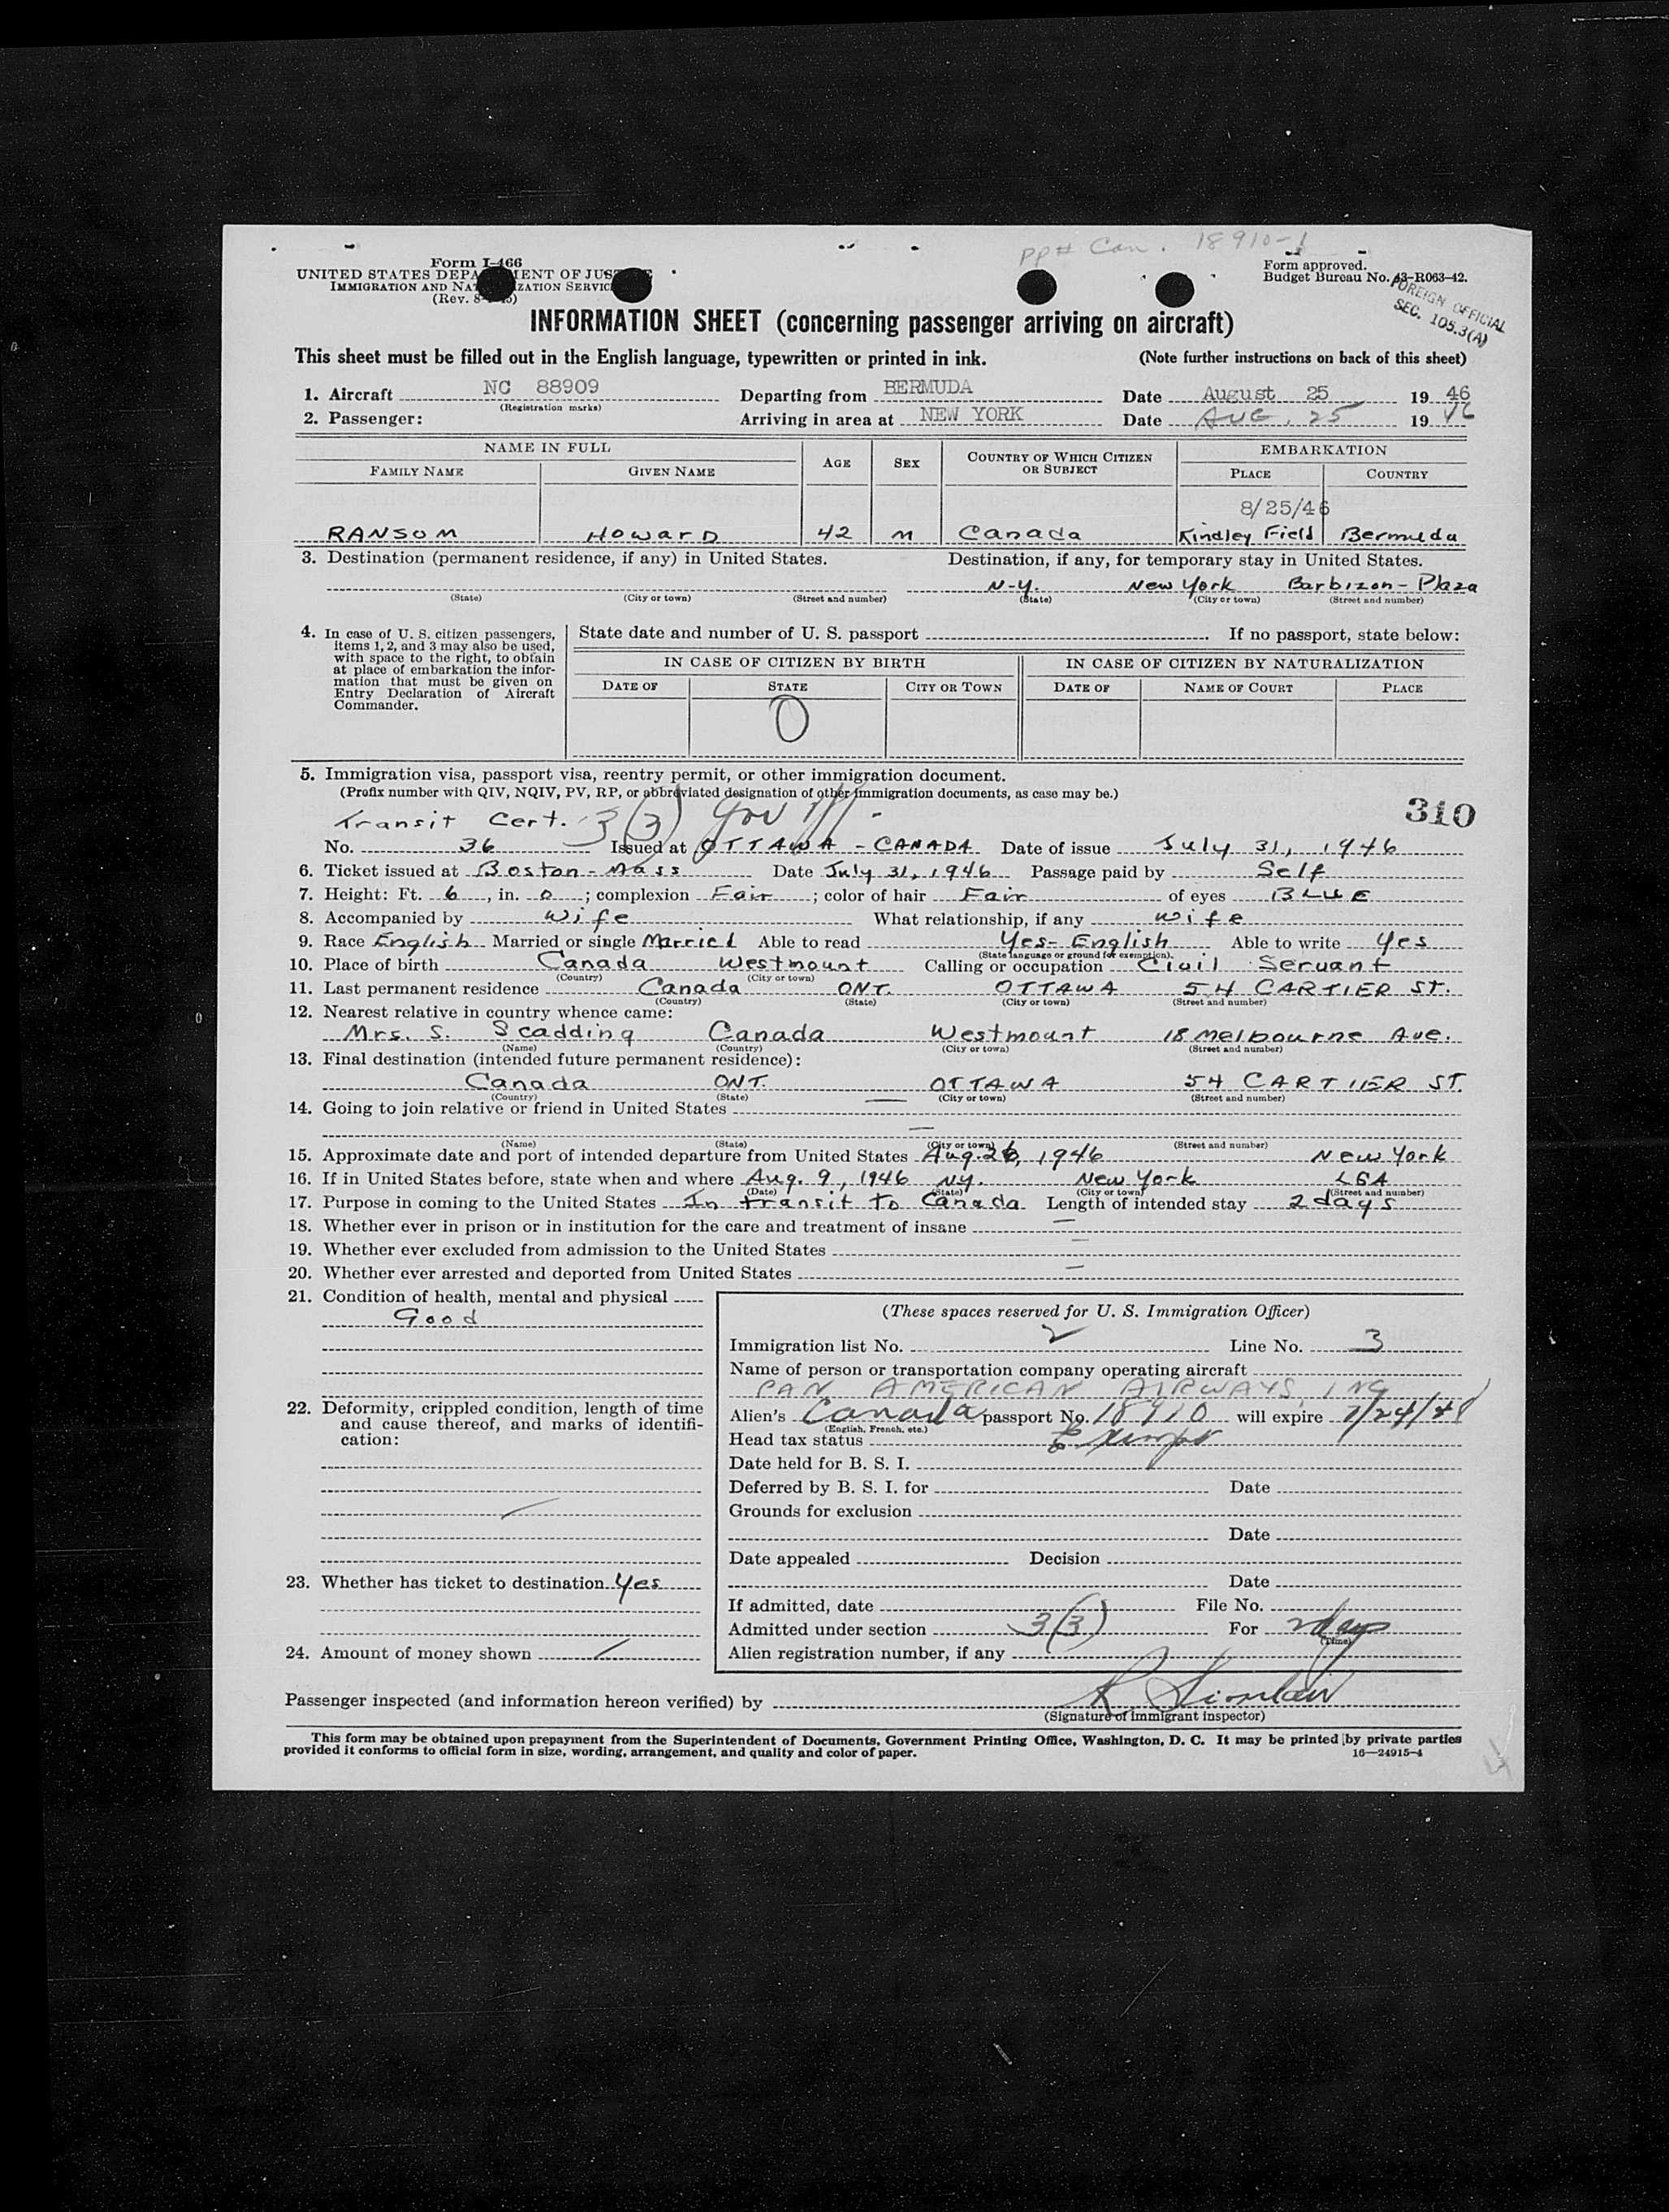 pp# Can. 18910-1
Form I-466
UNITED STATES DEPA ENT OF JUS
IMMIGRATION AND NA ZATION SERVIC
(Rev. 8- )
Form approved.
Budget Bureau No. 43-R063-42.
FOREIGN OFFICIAL
SEC. 105.3(A)
INFORMATION SHEET (concerning passenger arriving on aircraft)
This sheet must be filled out in the English language, typewritten or printed in ink. (Note further instructions on back of this sheet)
1. Aircraft NC 88909 Departing from BERMUDA Date August 25 19 46
(Registration marks)
2. Passenger: Arriving in area at NEW YORK Date AUG. 25 19 46
NAME IN FULL AGE SEX COUNTRY OF WHICH CITIZEN OR SUBJECT EMBARKATION
FAMILY NAME GIVEN NAME PLACE COUNTRY
8/25/46
RANSOM HOWARD 42 M Canada Kindley Field Bermuda
3. Destination (permanent residence, if any) in United States. Destination, if any, for temporary stay in United States.
N-Y. New York Barbizon-Plaza
(State) (City or town) (Street and number) (State) (City or town) (Street and number)
4. In case of U. S. citizen passengers, items 1, 2, and 3 may also be used, with space to the right, to obtain at place of embarkation the information that must be given on Entry Declaration of Aircraft Commander.
State date and number of U. S. passport . If no passport, state below:
IN CASE OF CITIZEN BY BIRTH IN CASE OF CITIZEN BY NATURALIZATION
DATE OF STATE CITY OR TOWN DATE OF NAME OF COURT PLACE
0
5. Immigration visa, passport visa, reentry permit, or other immigration document.
(Prefix number with QIV, NQIV, PV, RP, or abbreviated designation of other immigration documents, as case may be.)
310
Transit Cert. 3(3) Gov Off.
No. 36 Issued at OTTAWA - CANADA Date of issue July 31, 1946
6. Ticket issued at Boston - Mass Date July 31, 1946 Passage paid by Self
7. Height: Ft. 6, in. 0; complexion Fair; color of hair Fair of eyes BLUE
8. Accompanied by Wife What relationship, if any Wife
9. Race English Married or single Married Able to read Yes- English Able to write Yes
(State language or ground for exemption).
10. Place of birth Canada Westmount Calling or occupation Civil Servant
(Country) (City or town)
11. Last permanent residence Canada ONT. OTTAWA 54 CARTIER ST.
(Country) (State) (City or town) (Street and number)
12. Nearest relative in country whence came:
Mrs. S. Scadding Canada Westmount 18 Melbourne Ave.
(Name) (Country) (City or town) (Street and number)
13. Final destination (intended future permanent residence):
Canada ONT. OTTAWA 54 CARTIER ST.
(Country) (State) (City or town) (Street and number)
14. Going to join relative or friend in United States —
—
(Name) (State) (City or town) (Street and number)
15. Approximate date and port of intended departure from United States Aug. 26, 1946 New York
16. If in United States before, state when and where Aug. 9, 1946 NY. New York LGA
(Date) (State) (City or town) (Street and number)
17. Purpose in coming to the United States In transit to Canada Length of intended stay 2 days
18. Whether ever in prison or in institution for the care and treatment of insane —
19. Whether ever excluded from admission to the United States —
20. Whether ever arrested and deported from United States —
21. Condition of health, mental and physical
Good
22. Deformity, crippled condition, length of time
and cause thereof, and marks of identifi-
cation:
23. Whether has ticket to destination Yes
24. Amount of money shown
(These spaces reserved for U. S. Immigration Officer)
Immigration list No. 2 Line No. 3
Name of person or transportation company operating aircraft
PAN AMERICAN AIRWAYS, INC
Alien's Canada passport No. 18910 will expire 7/24/48
(English, French, etc.)
Head tax status Exempt
Date held for B. S. I.
Deferred by B. S. I. for Date
Grounds for exclusion
Date
Date appealed Decision
Date
If admitted, date File No.
Admitted under section 3(3) For 2 days
(Time)
Alien registration number, if any
Passenger inspected (and information hereon verified) by
(Signature of immigrant inspector)
This form may be obtained upon prepayment from the Superintendent of Documents, Government Printing Office, Washington, D. C. It may be printed by private parties
provided it conforms to official form in size, wording, arrangement, and quality and color of paper. 16—24915-4